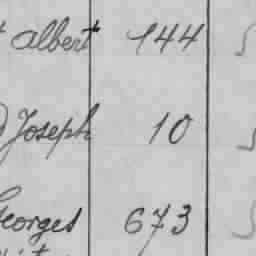 Albert 144
Joseph 10
Georges 673